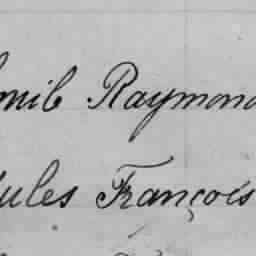 mile Raymond
ules François